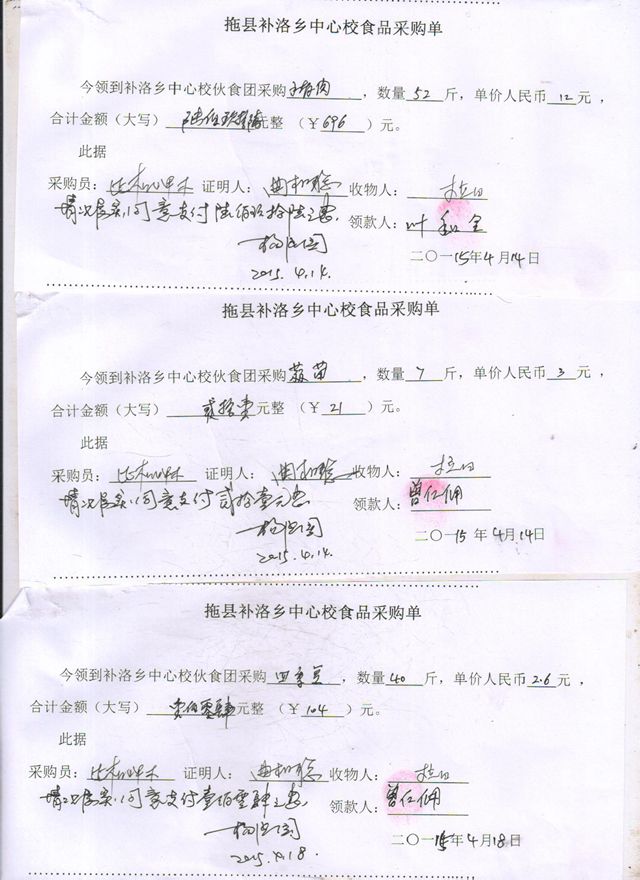 拖县补洛乡中心校食品采购单
今领到补洛乡中心校伙食团采购 肉，数量 52 斤，单价人民币 12 元，
合计金额（大写） 陆佰玖拾陆元整（￥696）元。
此据
采购员： 证明人： 收物人：
情况属实，同意支付陆佰玖拾陆元整。 领款人：叶
2015.4.14. 二〇一15年4月14日
拖县补洛乡中心校食品采购单
今领到补洛乡中心校伙食团采购 蒜苗，数量 7 斤，单价人民币 3 元，
合计金额（大写） 贰拾壹元整（￥21）元。
此据
采购员： 证明人： 收物人：
情况属实，同意支付贰拾壹元整 领款人：曾仁佣
2015.4.14. 二〇一15年4月14日
拖县补洛乡中心校食品采购单
今领到补洛乡中心校伙食团采购 四季豆，数量 40 斤，单价人民币 2.6 元，
合计金额（大写） 壹佰零肆元整（￥104）元。
此据
采购员： 证明人： 收物人：
情况属实，同意支付壹佰零肆元整， 领款人：曾仁佣
2015.4.18. 二〇一15年4月18日